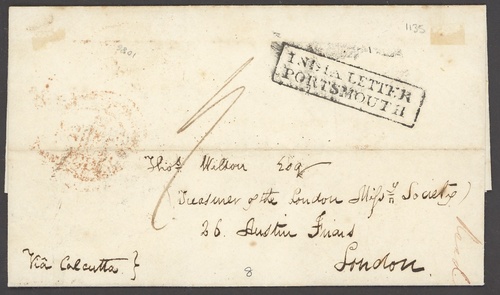 1135
INDIA LETTER
PORTSMOUTH
Thos. Wilson Esqr
Treasurer of the London Missy Society
26. Austin Friars
London.
Via Calcutta }
8